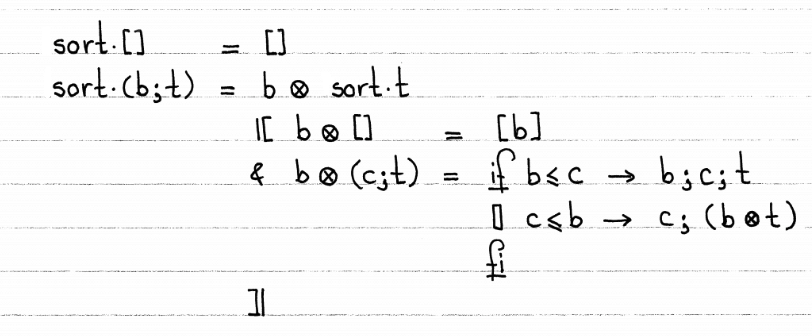 sort.[] = []
sort.(b;t) = b ⊗ sort.t
|[ b ⊗ [] = [b]
& b ⊗ (c;t) = if b ⩽ c → b;c;t
▯ c ⩽ b → c; (b ⊗ t)
fi
]|